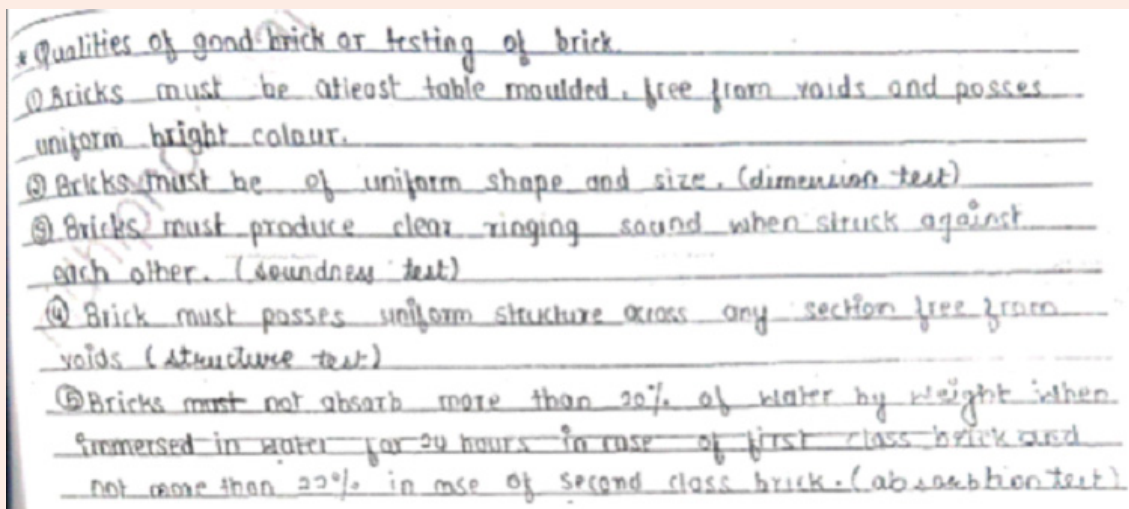 * Qualities of good brick or testing of brick.
① Bricks must be atleast table moulded, free from voids and posses
uniform bright colour.
② Bricks must be of uniform shape and size. (dimension test)
③ Bricks must produce clear ringing sound when struck against
each other. (soundness test)
④ Brick must posses uniform structure across any section free from
voids (structure test)
⑤ Bricks must not absorb more than 20% of water by weight when
immersed in water for 24 hours in case of first class brick and
not more than 22% in case of second class brick. (absorbtion test)